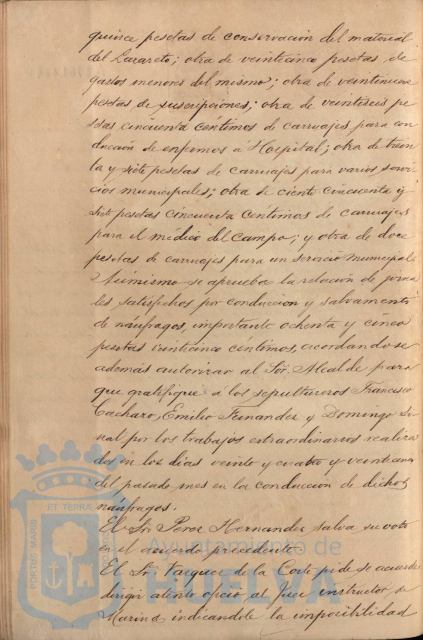 quince pesetas de conservación del material
del Lazareto; otra de veinticinco pesetas de
gastos menores del mismo; otra de veintinueve
pesetas de suscripciones; otra de veintiseis pe
setas cincuenta céntimos de carruajes para con
ducción de enfermos á Hospital; otra de trein
ta y siete pesetas de carruajes para varios servi
cios municipales; otra de ciento cincuenta y
siete pesetas cincuenta céntimos de carruajes
para el médico del Campo; y otra de doce
pesetas de carruajes para un servicio municipal
Asimismo se aprueba la relación de jorna
les satisfechos por conducción y salvamento
de náufragos, importante ochenta y cinco
pesetas veinticinco céntimos, acordandose
además autorizar al Sor. Alcalde para
que gratifique á los sepultureros Francisco
Cacharo, Emilio Fernandez y Domingo
por los trabajos extraordinarios realiza
dos en los dias veinte y cuatro y
del pasado mes en la conducción de dichos
náufragos.
El Sr. Perez Hernandez salva su voto
en el acuerdo precedente.
El Sr. Vazquez de la Corte pide se acuerde
dirigir atento oficio al Juez instructor de
Marina indicandole la imposibilidad
PORTUS MARIS ET TERRAE
Ayuntamiento de
HUELVA